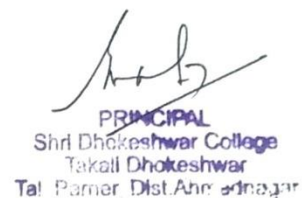 PRINCIPAL
Shri Dhokeshwar College
Takali Dhokeshwar
Tal Parner, Dist.Ahmednagar